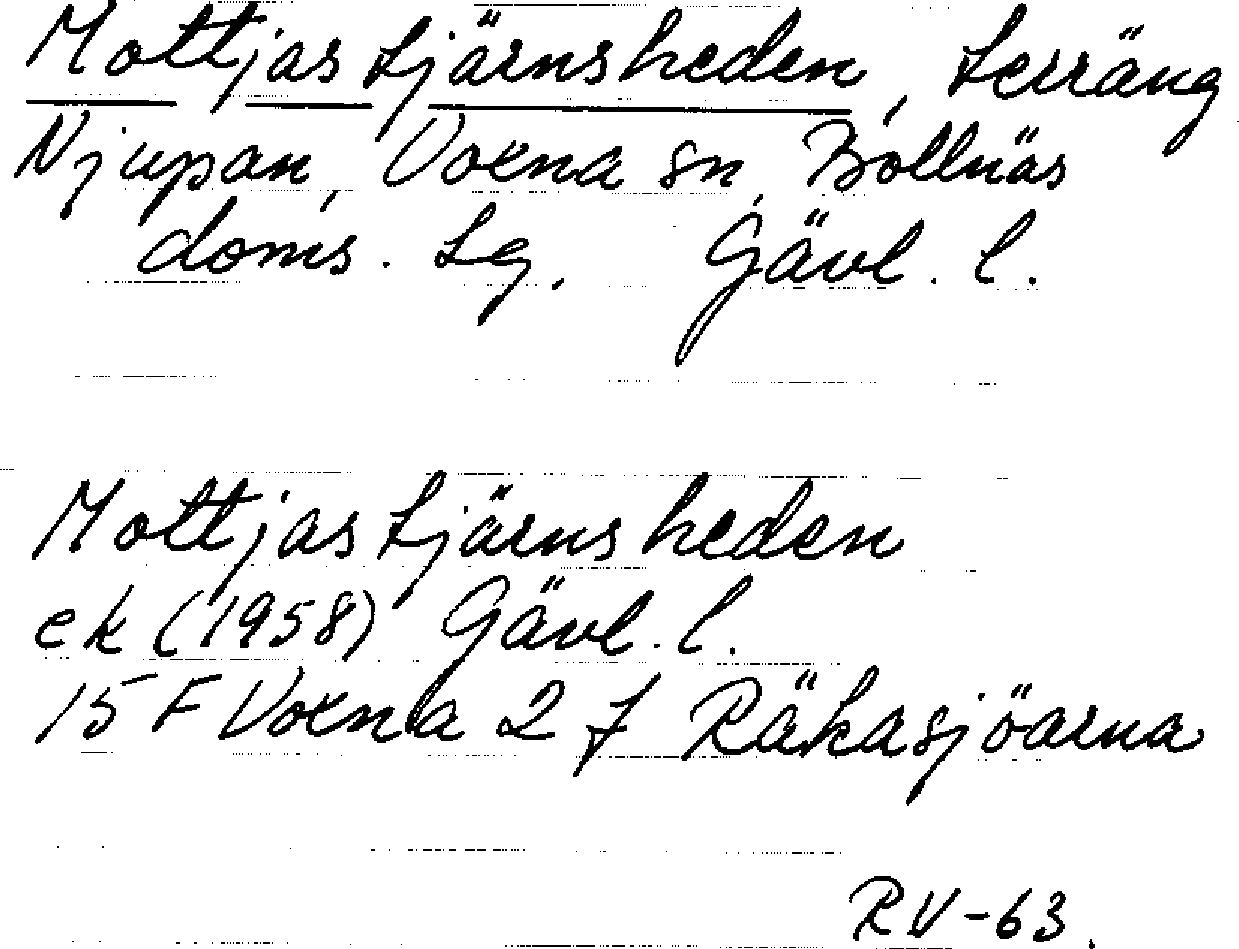 Mottjastjärnsheden, Terräng
Njupan, Voxna sn, Bollnäs
doms. tg, Gävl. l.
Mottjastjärnsheden
ek (1958) Gävl. l.
15 F Voxna 2 f Räkasjöarna
RV-63.